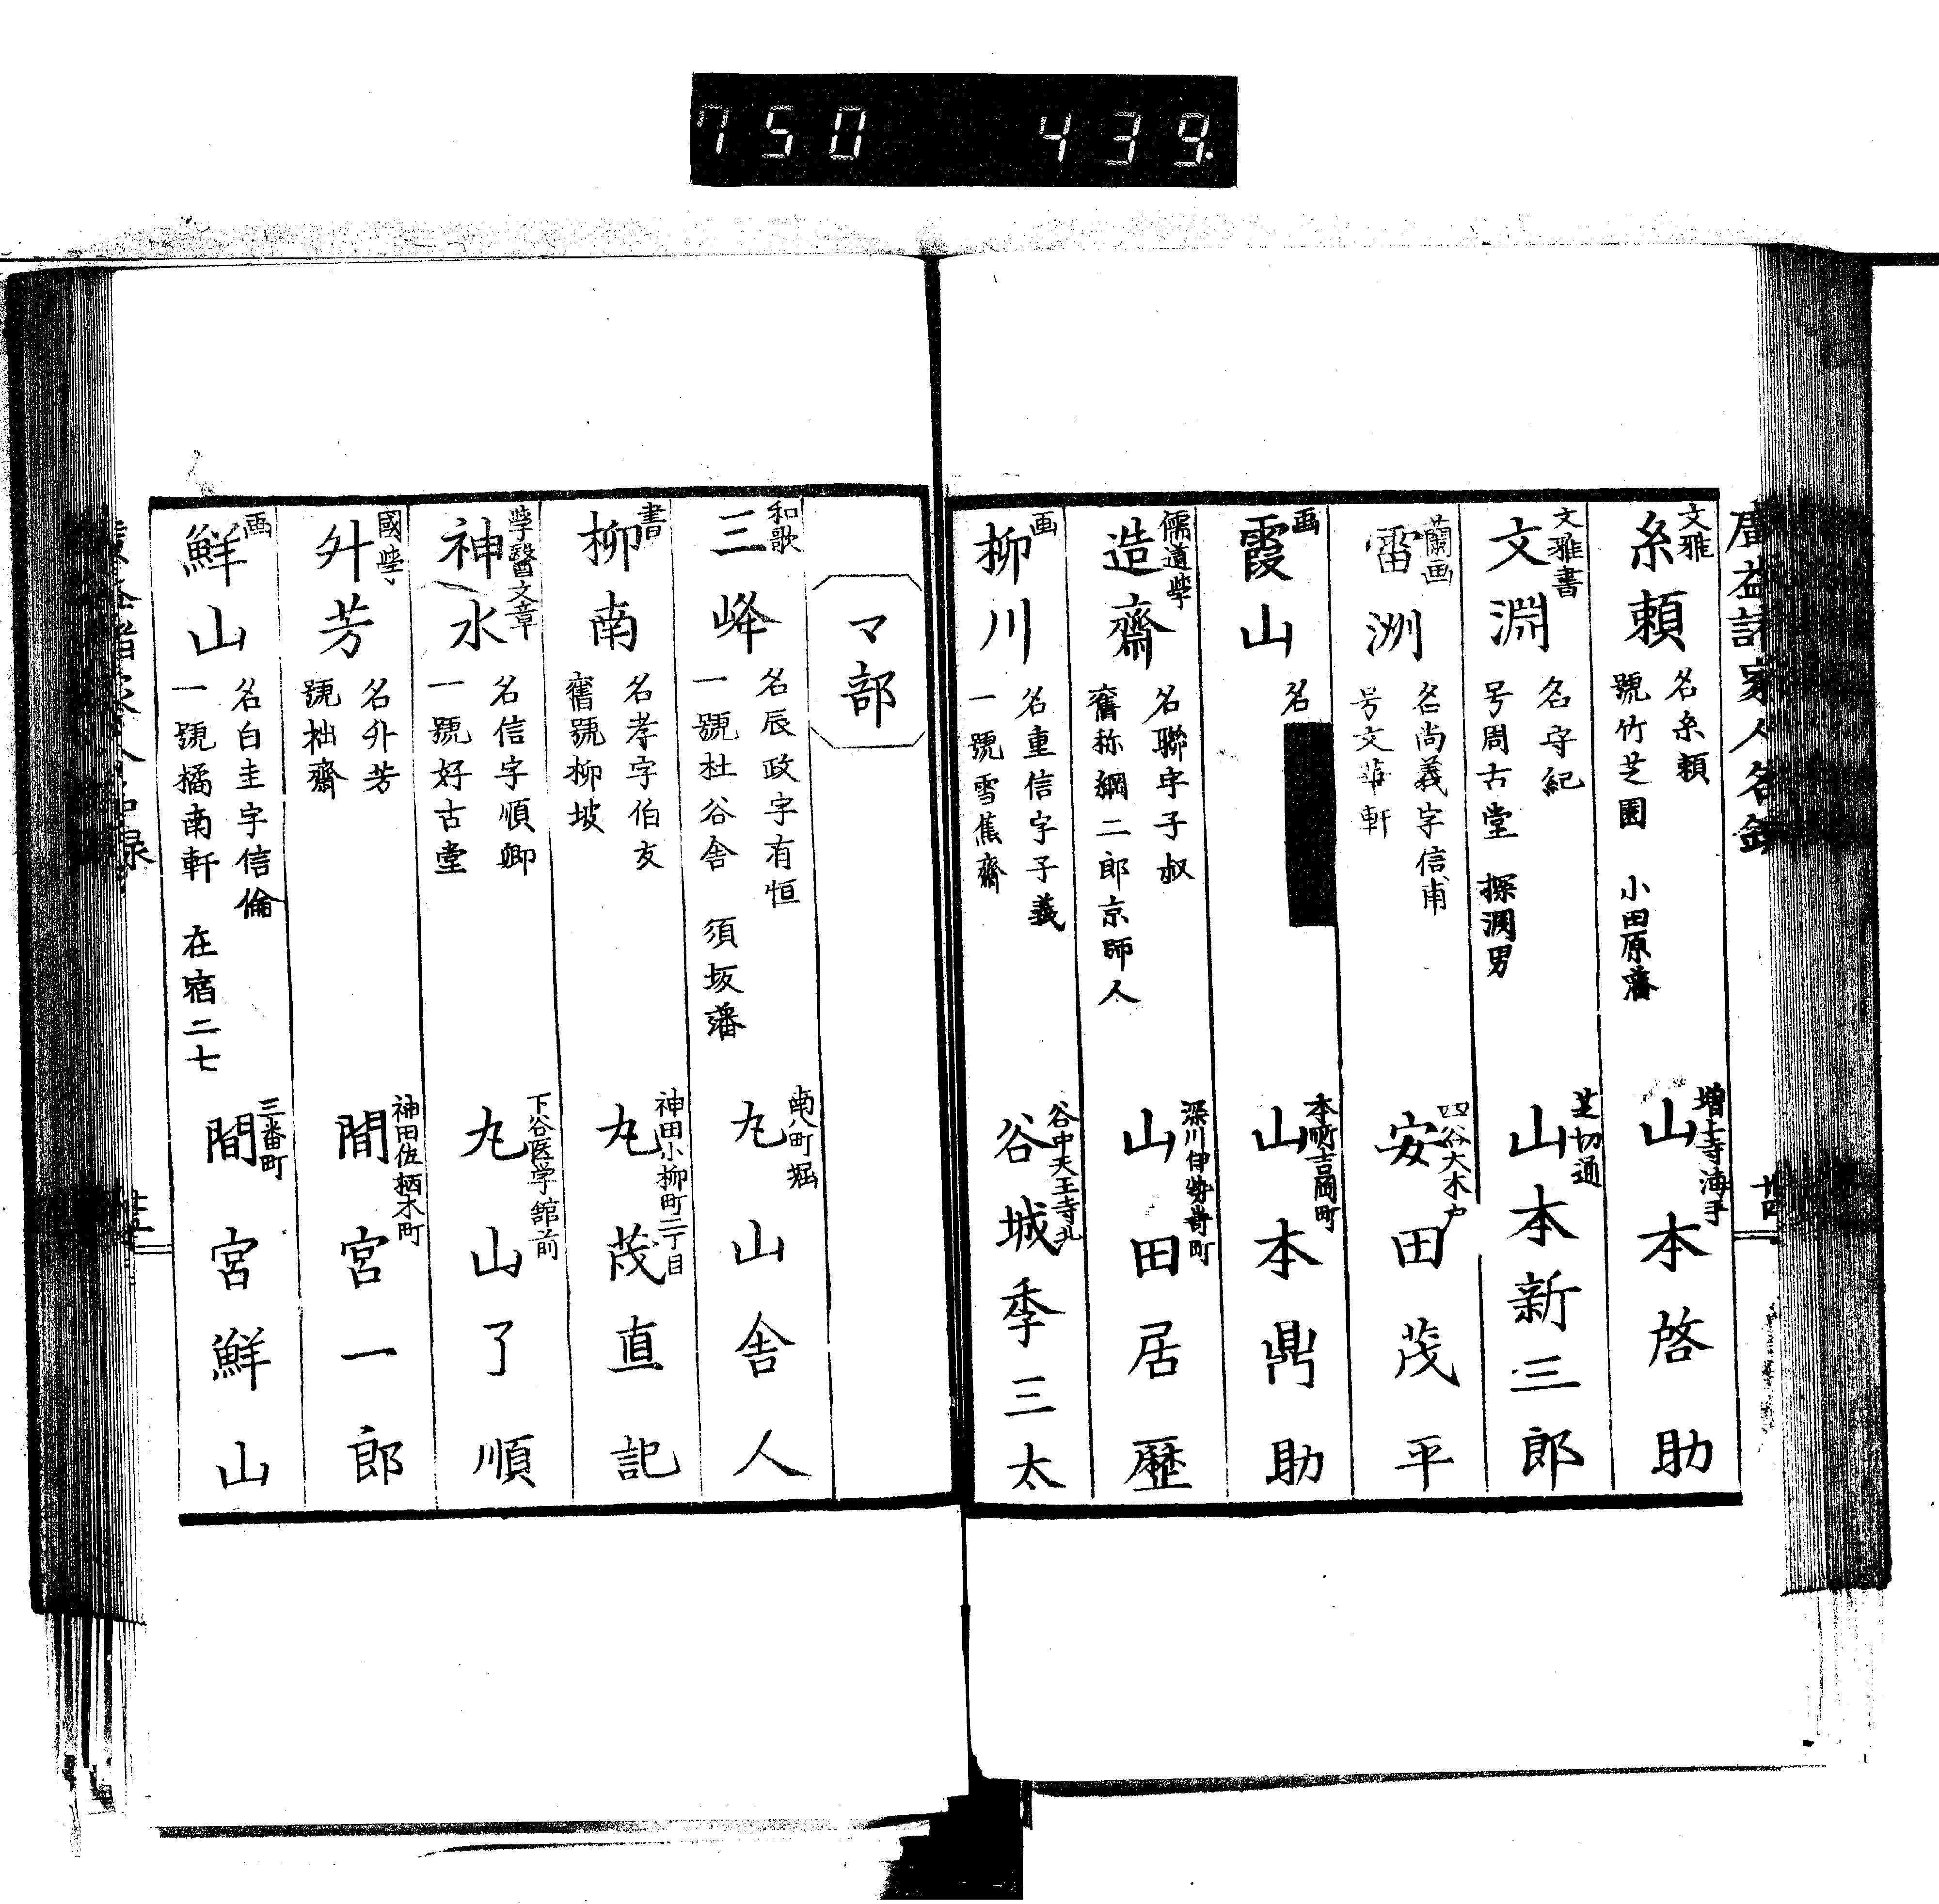 750 439.
廣益諸家人名録
廿四
文雅
糸頼
名糸頼
號竹芝園 小田原藩
増上寺海手
山本啓助
文雅書
文淵
名守紀
号周古堂 探淵男
芝切通
山本新三郎
蘭画
雷洲
名尚義字信甫
号文華軒
四谷大木戸
安田茂平
画
霞山
名
本所吉岡町
山本鼎助
儒道學
造齋
名聯字子叔
舊称綱二郎京師人
深川伊勢嵜町
山田居歴
画
柳川
名重信字子義
一號雪蕉齋
谷中天王寺北
谷城季三太
マ部
和歌
三峰
名辰政字有恒
一號杜谷舎 須坂藩
南八町堀
丸山舎人
書
柳南
名孝字伯友
舊號柳坡
神田小柳町二丁目
丸茂直記
學醫文章
神水
名信字順卿
一號好古堂
下谷医学舘前
丸山了順
國學
外芳
名外芳
號柮齋
神田佐柄木町
間宮一郎
画
鮮山
名白圭字信倫
一號橘南軒 在宿二七
三番町
間宮鮮山